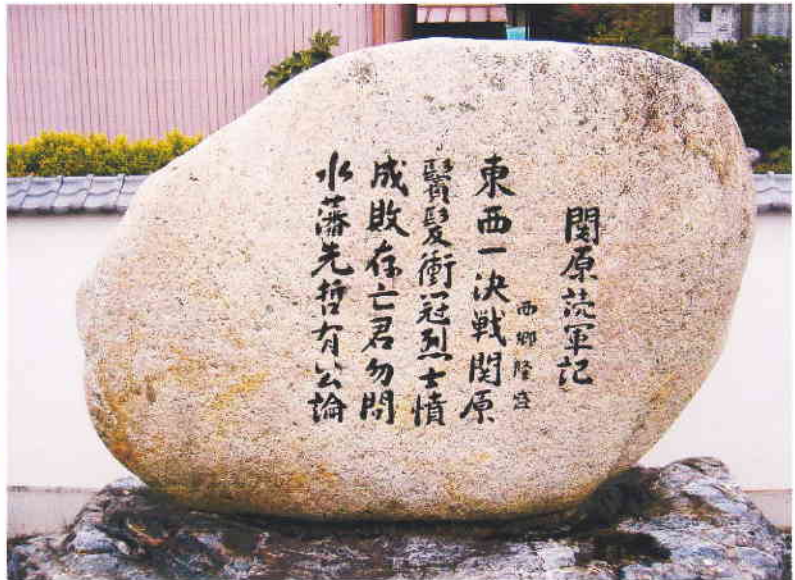 関原読軍記
西郷隆盛
東西一決戦関原
鬢髪衝冠烈士憤
成敗存亡君勿問
水藩先哲有公論